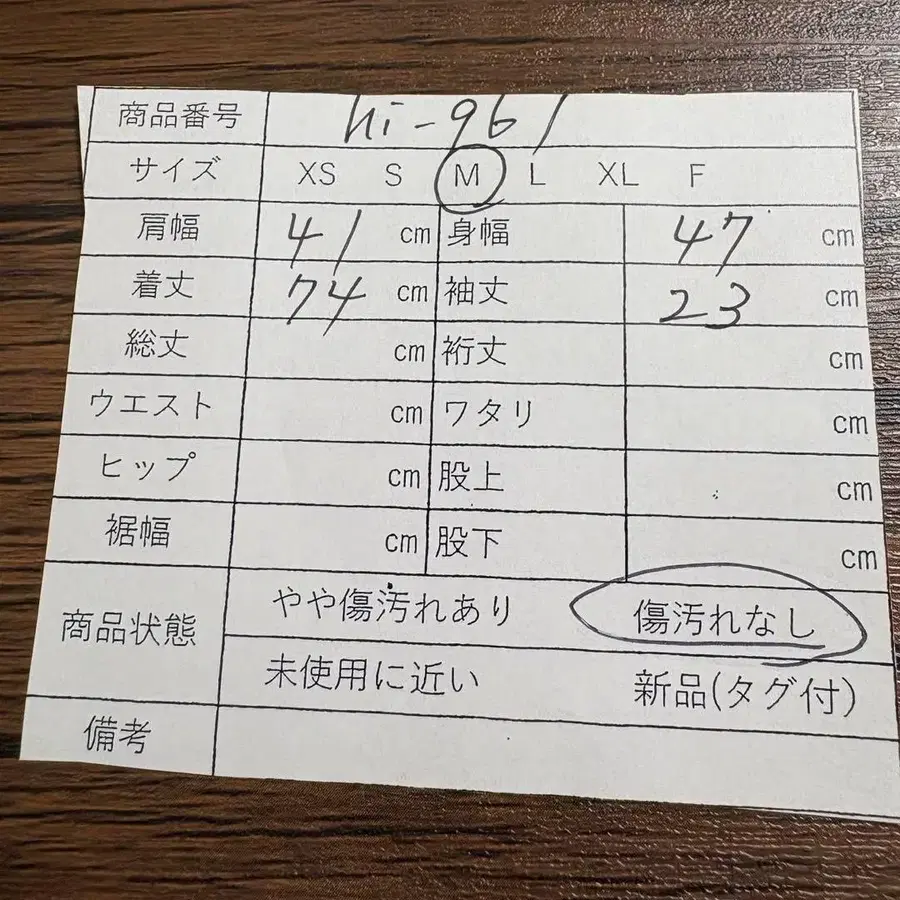 商品番号 hi-961
サイズ XS S M L XL F
肩幅 41 cm 身幅 47 cm
着丈 74 cm 袖丈 23 cm
総丈 cm 裄丈 cm
ウエスト cm ワタリ cm
ヒップ cm 股上 cm
裾幅 cm 股下 cm
商品状態 やや傷汚れあり 傷汚れなし
未使用に近い 新品(タグ付)
備考